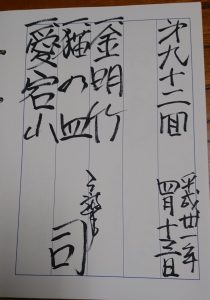 第九十二回
平成廿一年
四月十三日
一金明竹
一猫の皿
一愛宕山
司